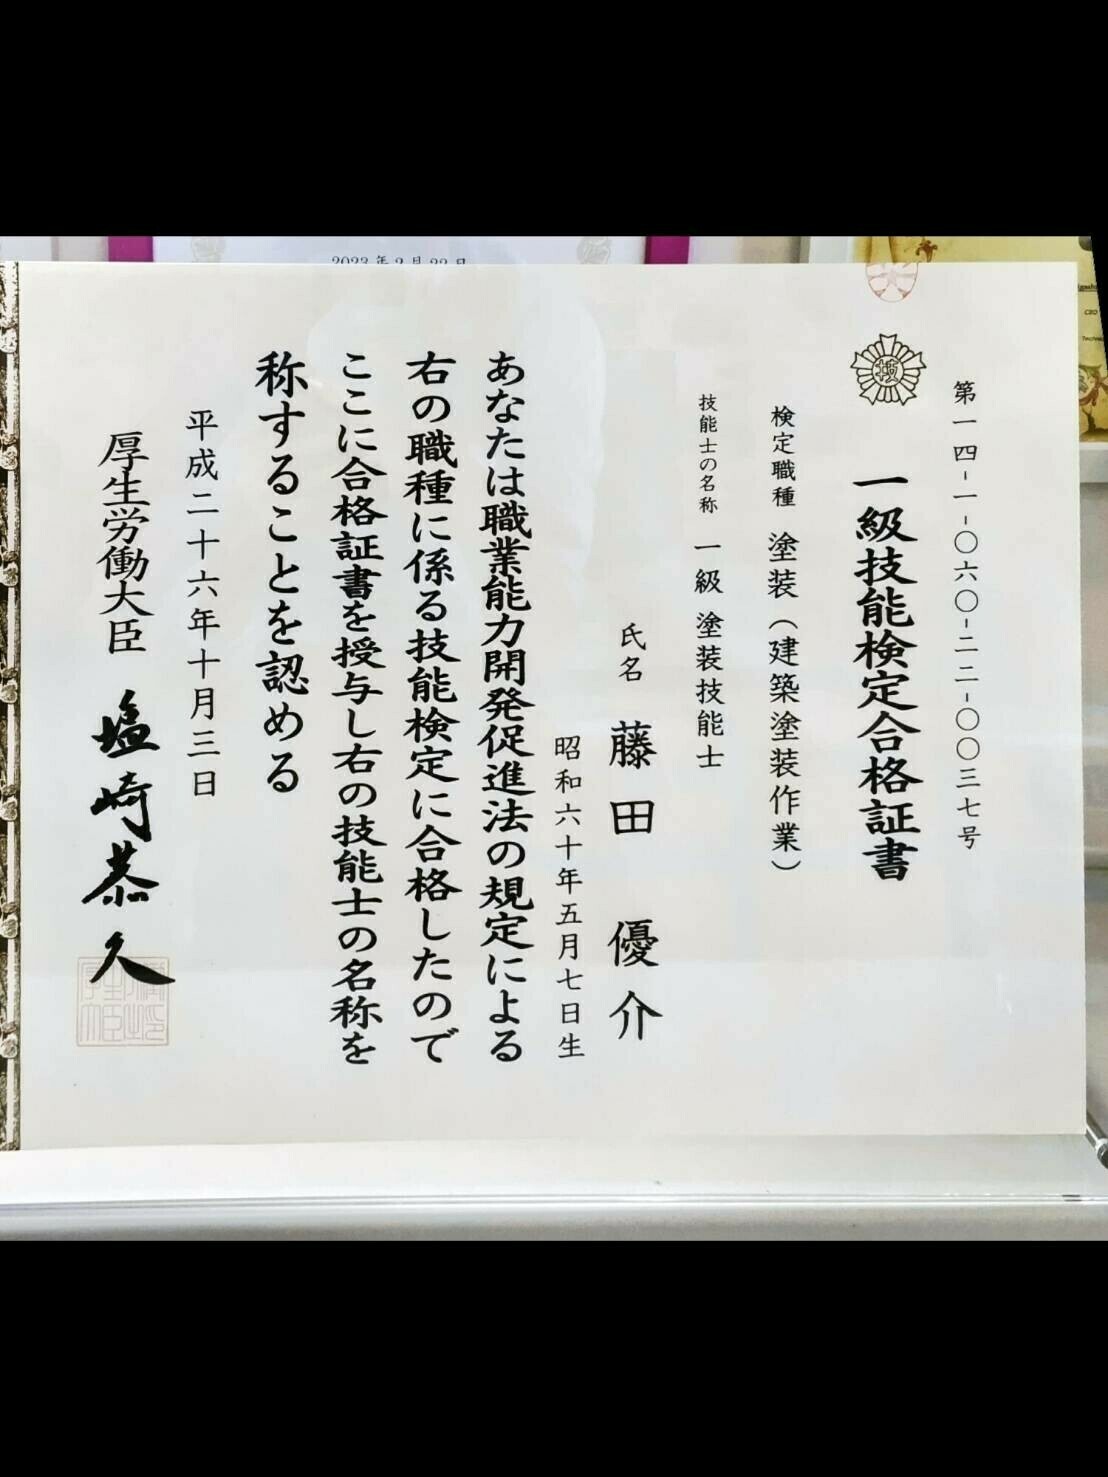 第一四-一-〇六〇-二二-〇〇三七号
技
一級技能検定合格証書
検定職種 塗装（建築塗装作業）
技能士の名称 一級 塗装技能士
氏名 藤田 優介
昭和六十年五月七日生
あなたは職業能力開発促進法の規定による
右の職種に係る技能検定に合格したので
ここに合格証書を授与し右の技能士の名称を
称することを認める
平成二十六年十月三日
厚生労働大臣 塩崎恭久
2023年2月22日
CEO